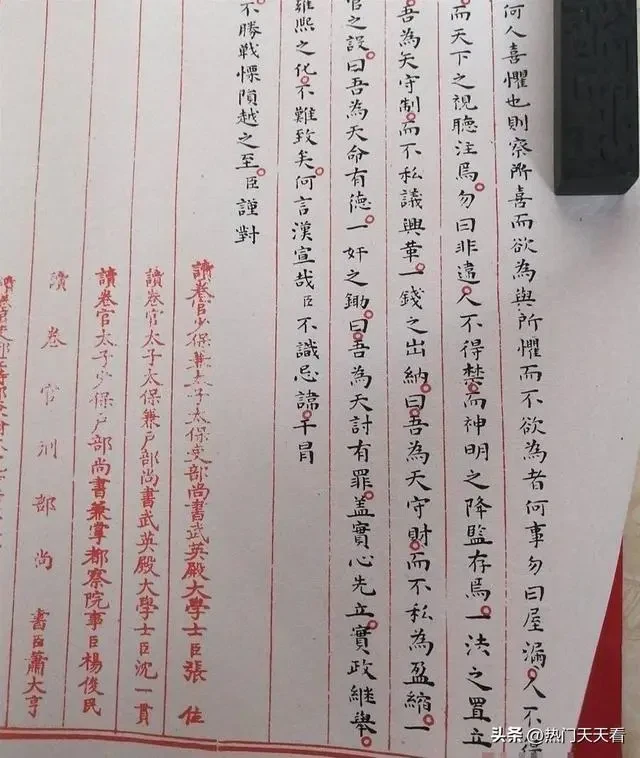 何人喜懼也則察所喜而欲為與所懼而不欲為者何事勿曰屋漏人不得
而天下之視聽注焉勿曰非違人不得禁而神明之降監存焉一法之置立
吾為天守制而不私議興革一錢之出納曰吾為天守財而不私為盈縮一
官之設曰吾為天命有德一奸之鋤曰吾為天討有罪盖實心先立實政継舉
雍熙之化不難致矣何言漢宣哉臣不識忌諱干冒
不勝戰慄隕越之至臣謹對
讀卷官少保兼太子太保吏部尚書武英殿大學士臣張位
讀卷官太子太保兼戶部尚書武英殿大學士臣沈一貫
讀卷官太子少保戶部尚書兼掌都察院事臣楊俊民
讀卷官刑部尚書臣蕭大亨
头条 @热门天天看